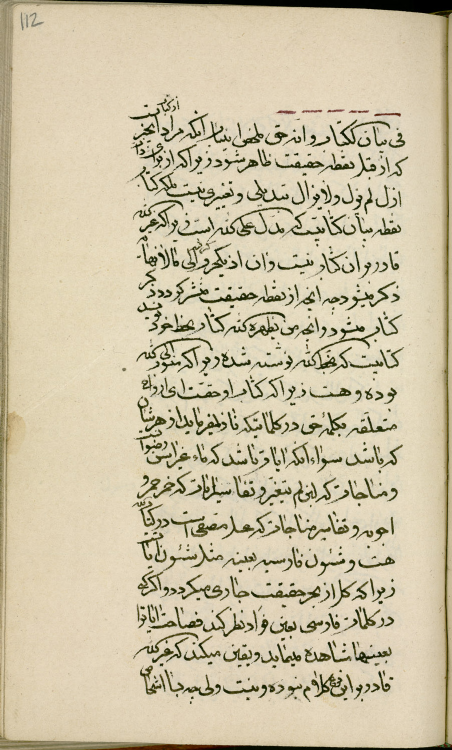 112
فی بیان الکتاب و انه حق ملخص این باب آنکه مراد بخیر از کتاب
که از قبل نقطه حقیقت ظاهر شود زیرا که از برای او
ازل لم یزل و لا یزال تبدیلی و تغییری نیست بلکه کتاب
نقطه بیان کتابیست که مدل علی الله است زیرا که غیر الله
قادر بر آن کتاب نیست و آن از یک حرف گرفته الی ما لا نهایه
ذکر میشود چه آنچه از نقطه حقیقت مشرق گردد ذکر
کتاب میشود و آنچه من یظهره الله کتاب بخط خود
کتابیست که بخط الله نوشته شده زیرا که منسوب الی الله
بوده و هست زیرا که کتاب او حقیقت ارواح
متعلقه بکلمه حق در کلماتیکه نازل میفرماید از هر شأن
که باشد سواء آنکه آیات باشد که ماء غیر آسن
و مناجات که لبن لم یتغیر و تفاسیر مناجات که خمر حمر و
اجوبه و تفاسیر مناجات که عسل مصفی است در کتاب الله
هست و شئون فارسیه بعینه مثل شئون آیات
زیرا که کل از بحر حقیقت جاری میگردد و اگر کسی
در کلمات فارسی بعین فؤاد نظر کند فصاحت آیات را
بعینها مشاهده مینماید و یقین میکند که غیر الله
قادر بر این نوع کلام نبوده و نیست ولی چه بسا اشخاص